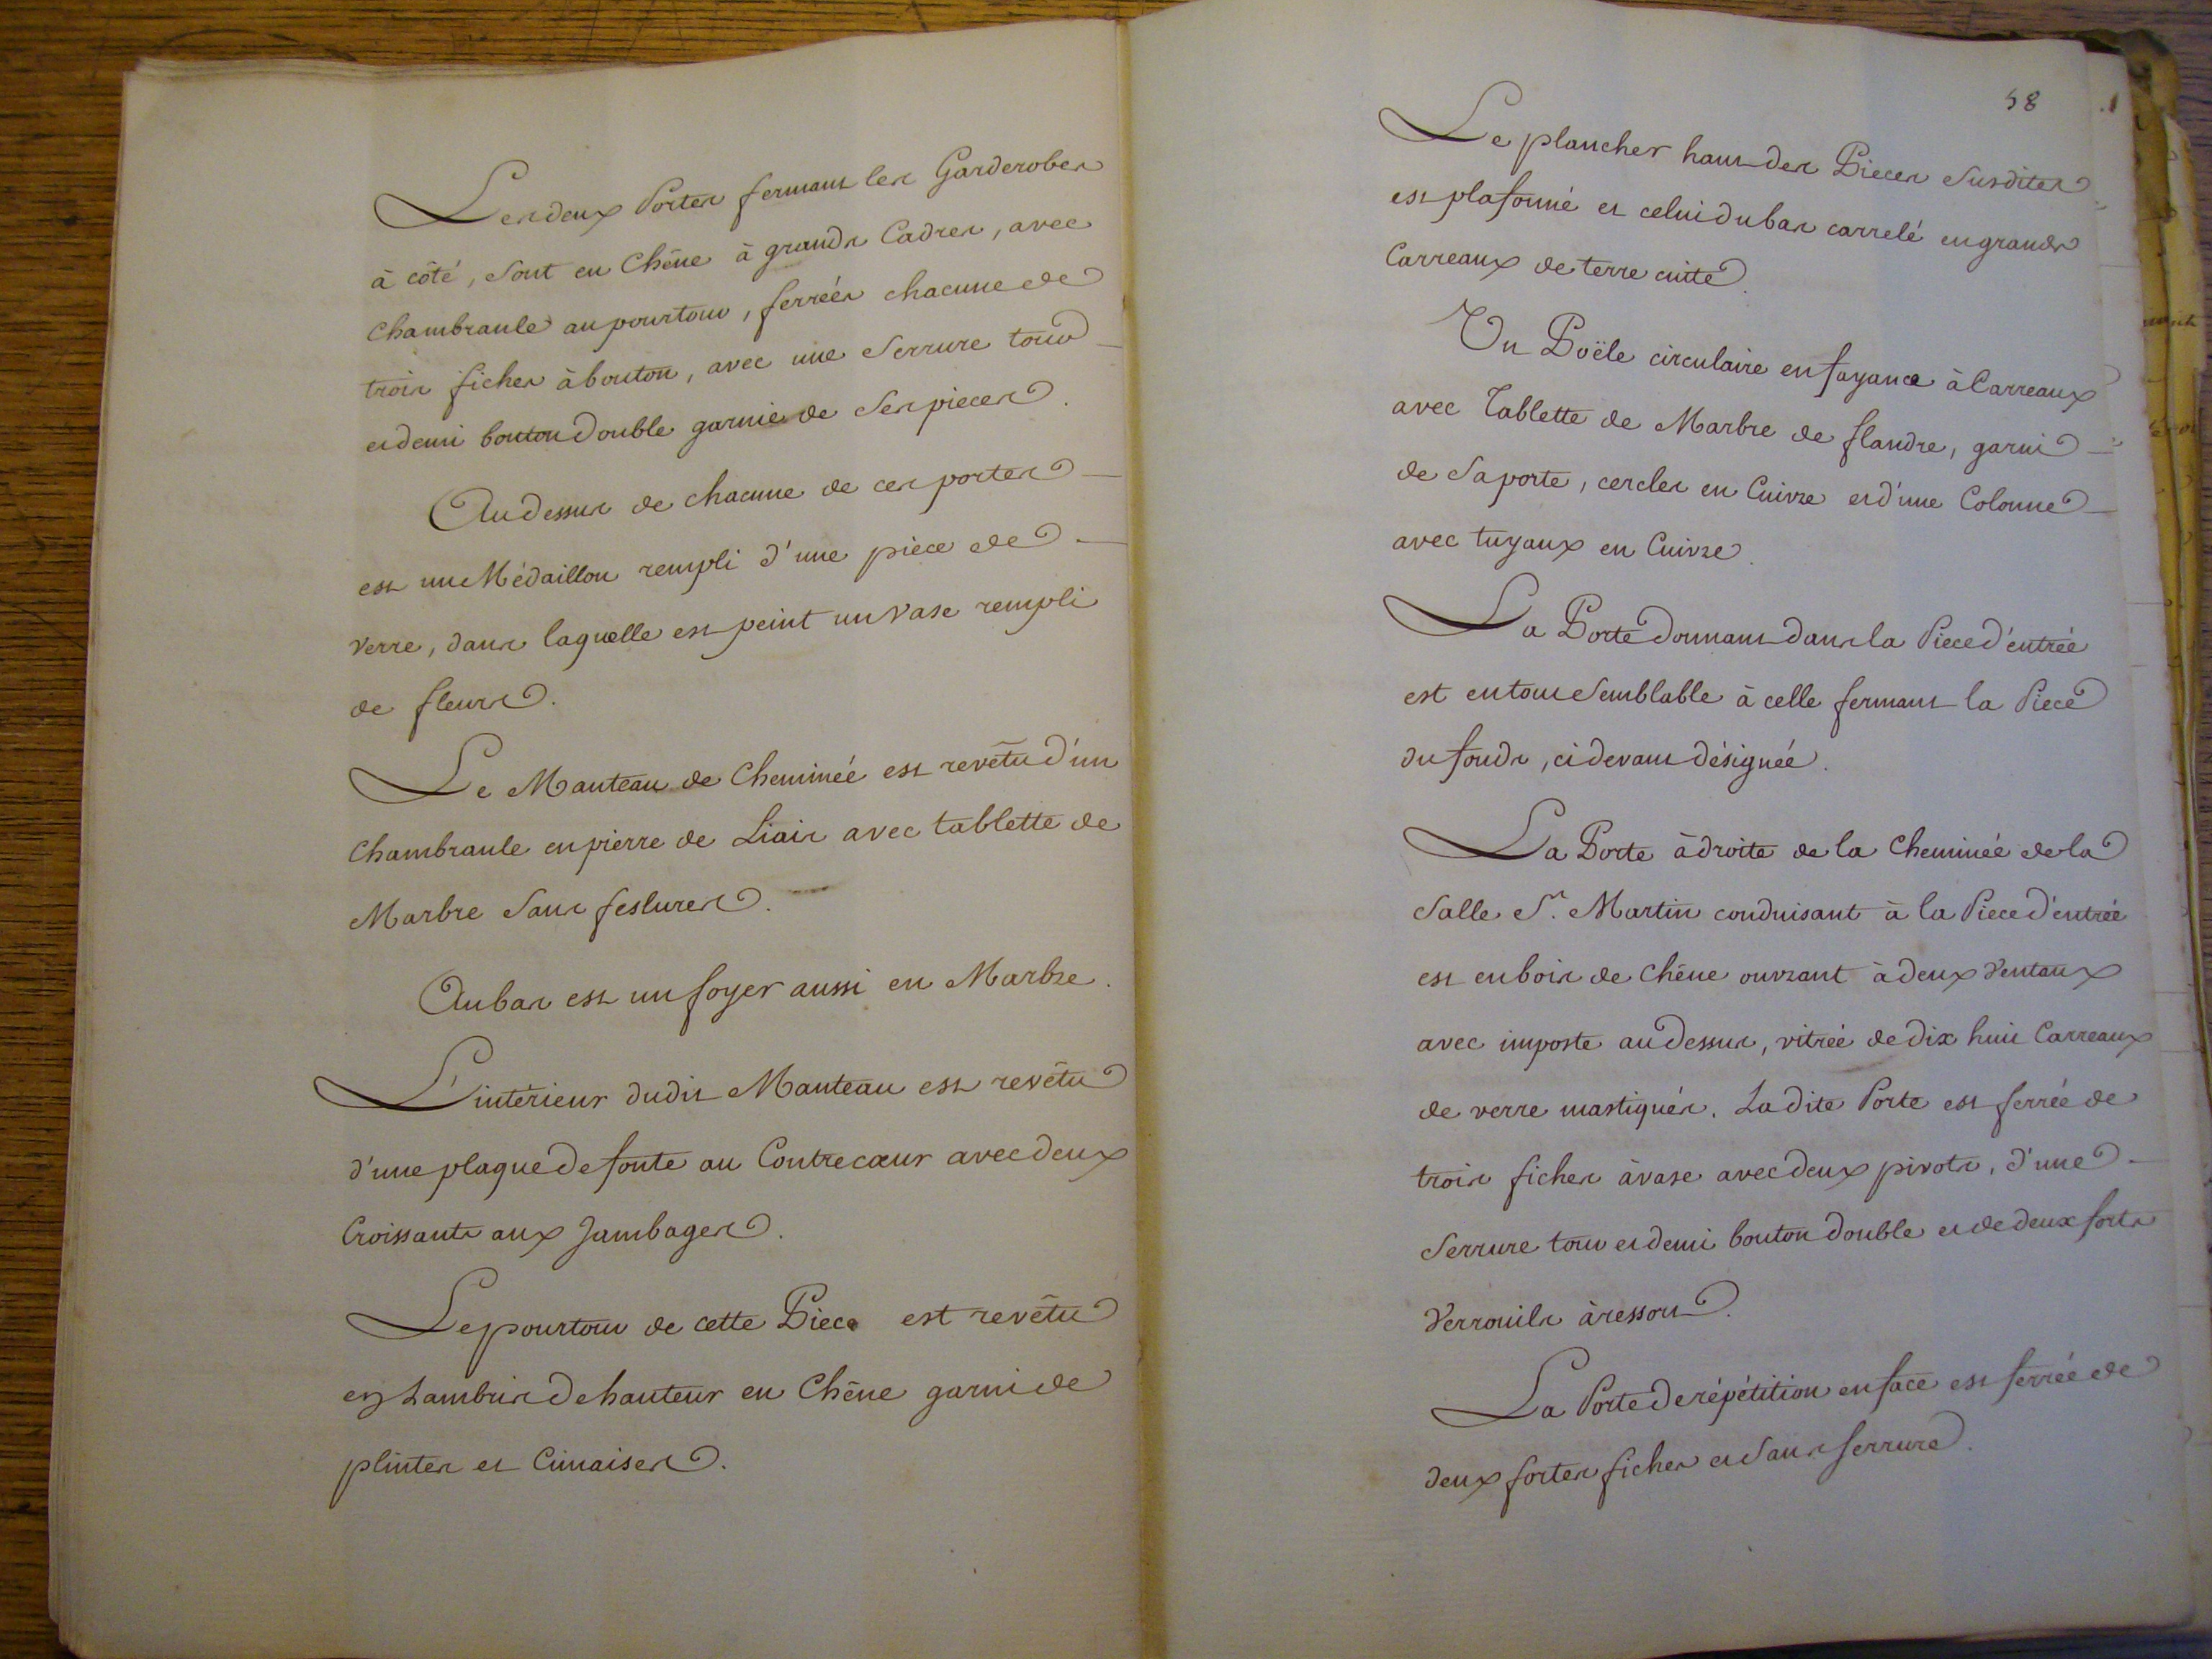 Les deux Portes fermant les Garderobes
à côté, sont en Chêne à grands Cadres, avec
Chambranle au pourtour, ferrées chacune de
trois fiches à bouton, avec une Serrure tour
et demi bouton double garnie de ses pieces.
Au dessus de chacune de ces portes
est un Médaillon rempli d'une pièce de
verre, dans laquelle est peint un Vase rempli
de fleurs.
Le Manteau de Cheminée est revêtu d'un
Chambranle en pierre de Liais avec tablette de
Marbre sans feslures.
Au bas est un foyer aussi en Marbre.
L'intérieur dudit Manteau est revêtu
d'une plaque de fonte au Contrecœur avec deux
Croissants aux Jambages.
Le pourtour de cette Piece est revêtu
en Lambris de hauteur en Chêne garni de
plintes et Cimaises.
58
Le plancher haut des Pieces susdites
est plafonné et celui du bas carrelé en grands
Carreaux de terre cuite.
Un Poële circulaire en fayance à Carreaux
avec Tablette de Marbre de flandre, garni
de sa porte, cercles en Cuivre et d'une Colonne
avec tuyaux en Cuivre.
La Porte donnant dans la Piece d'entrée
est en tout semblable à celle fermant la Piece
du fonds, ci devant désignée.
La Porte à droite de la Cheminée de la
Salle St. Martin conduisant à la Piece d'entrée
est en bois de Chêne ouvrant à deux Ventaux
avec imposte au dessus, vitrée de dix huit Carreaux
de verre mastiqués. Ladite Porte est ferrée de
trois fiches à vase avec deux pivots, d'une
Serrure tour et demi bouton double et de deux forts
Verrouils à ressort.
La Porte de répétition en face est ferrée de
deux fortes fiches et sans serrure.